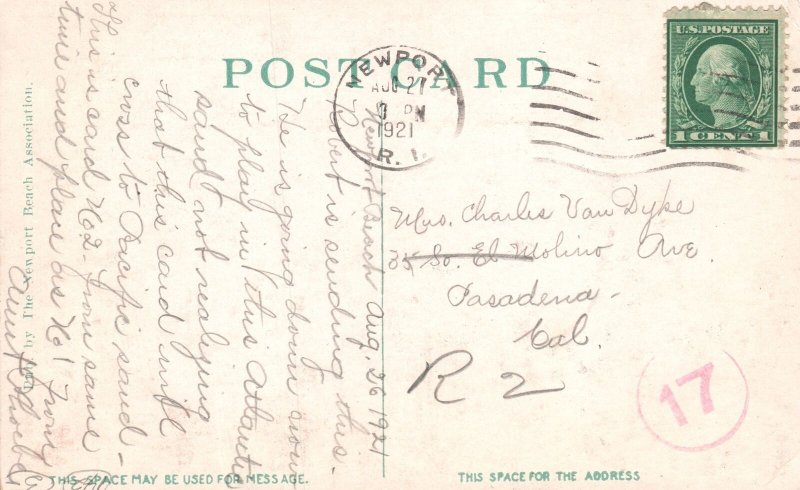 POST CARD
NEWPORT
AUG 27
3 PM
1921
R. I.
U.S. POSTAGE
1 CENT 1
Newport Beach Aug. 26 1921
Robert is sending this.
He is going down now
to play in this Atlantic
sand not realizing
that this card will
cross to Pacific sand -
This is card No 2 - from same
time and place as No 1 from
Aunt Phoebe
Mrs. Charles Van Dyke
35 So. El Molino Ave.
Pasadena -
Cal.
R 2
17
by The Newport Beach Association.
THIS SPACE MAY BE USED FOR MESSAGE.
THIS SPACE FOR THE ADDRESS